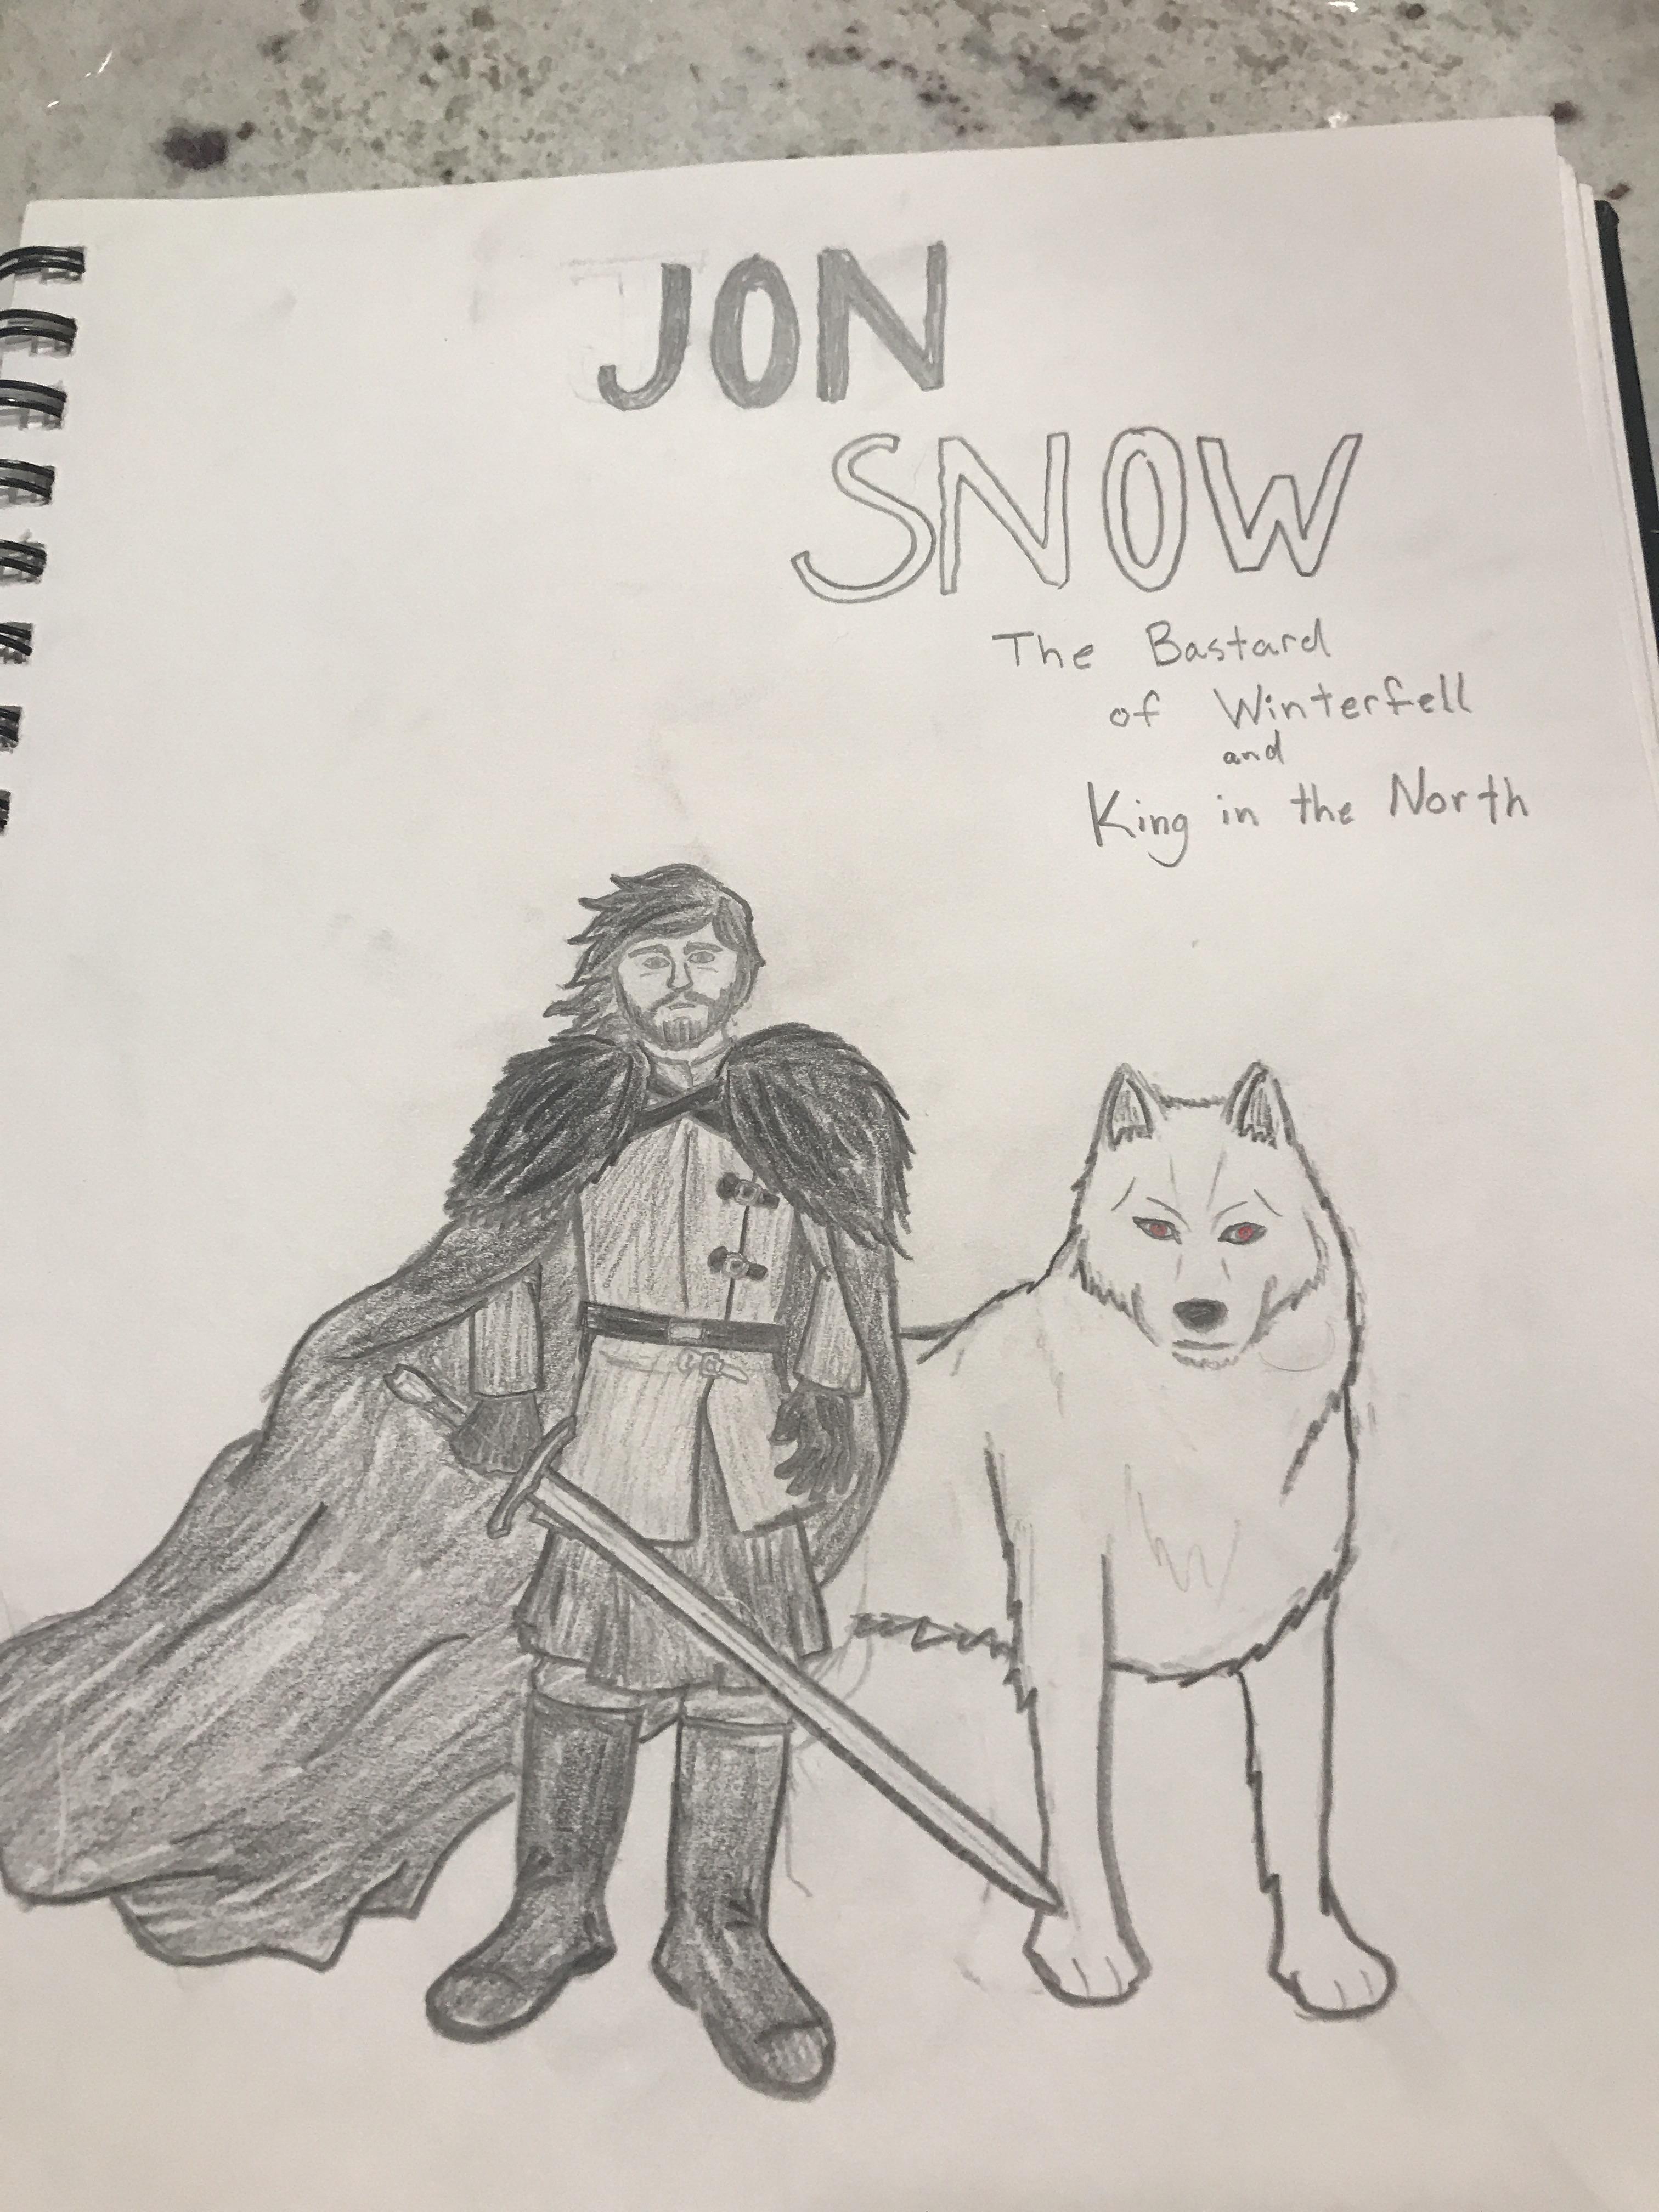 JON
SNOW
The Bastard
of Winterfell
and
King in the North